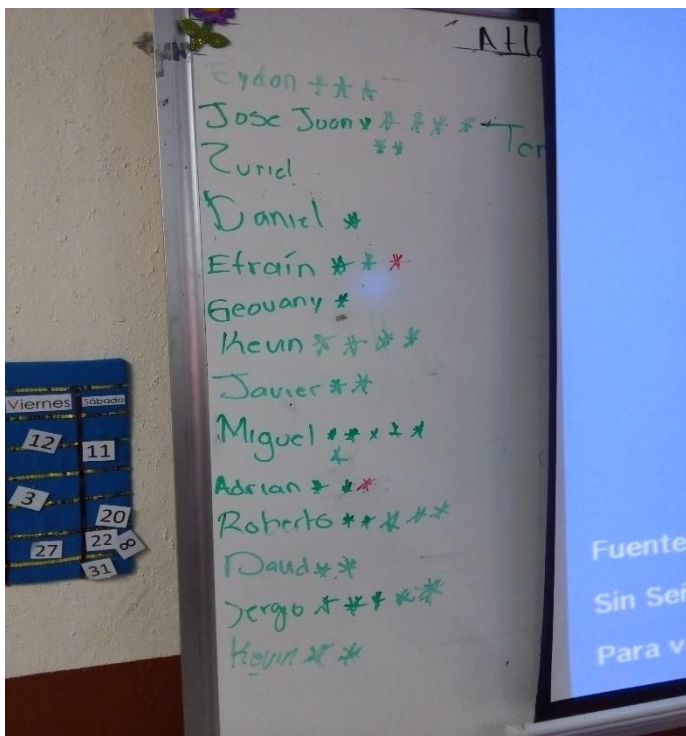 Eydon ***
Jose Juan ***** Ter
**
Zuriel
Daniel *
Efraín ***
Geovany *
Kevin ****
Javier **
Miguel *****
*
Adrian ***
Roberto *****
David **
Sergio *****
Kevin **
Viernes Sábado
12
11
3
20
27
22
8
31
Fuente
Sin Señ
Para v